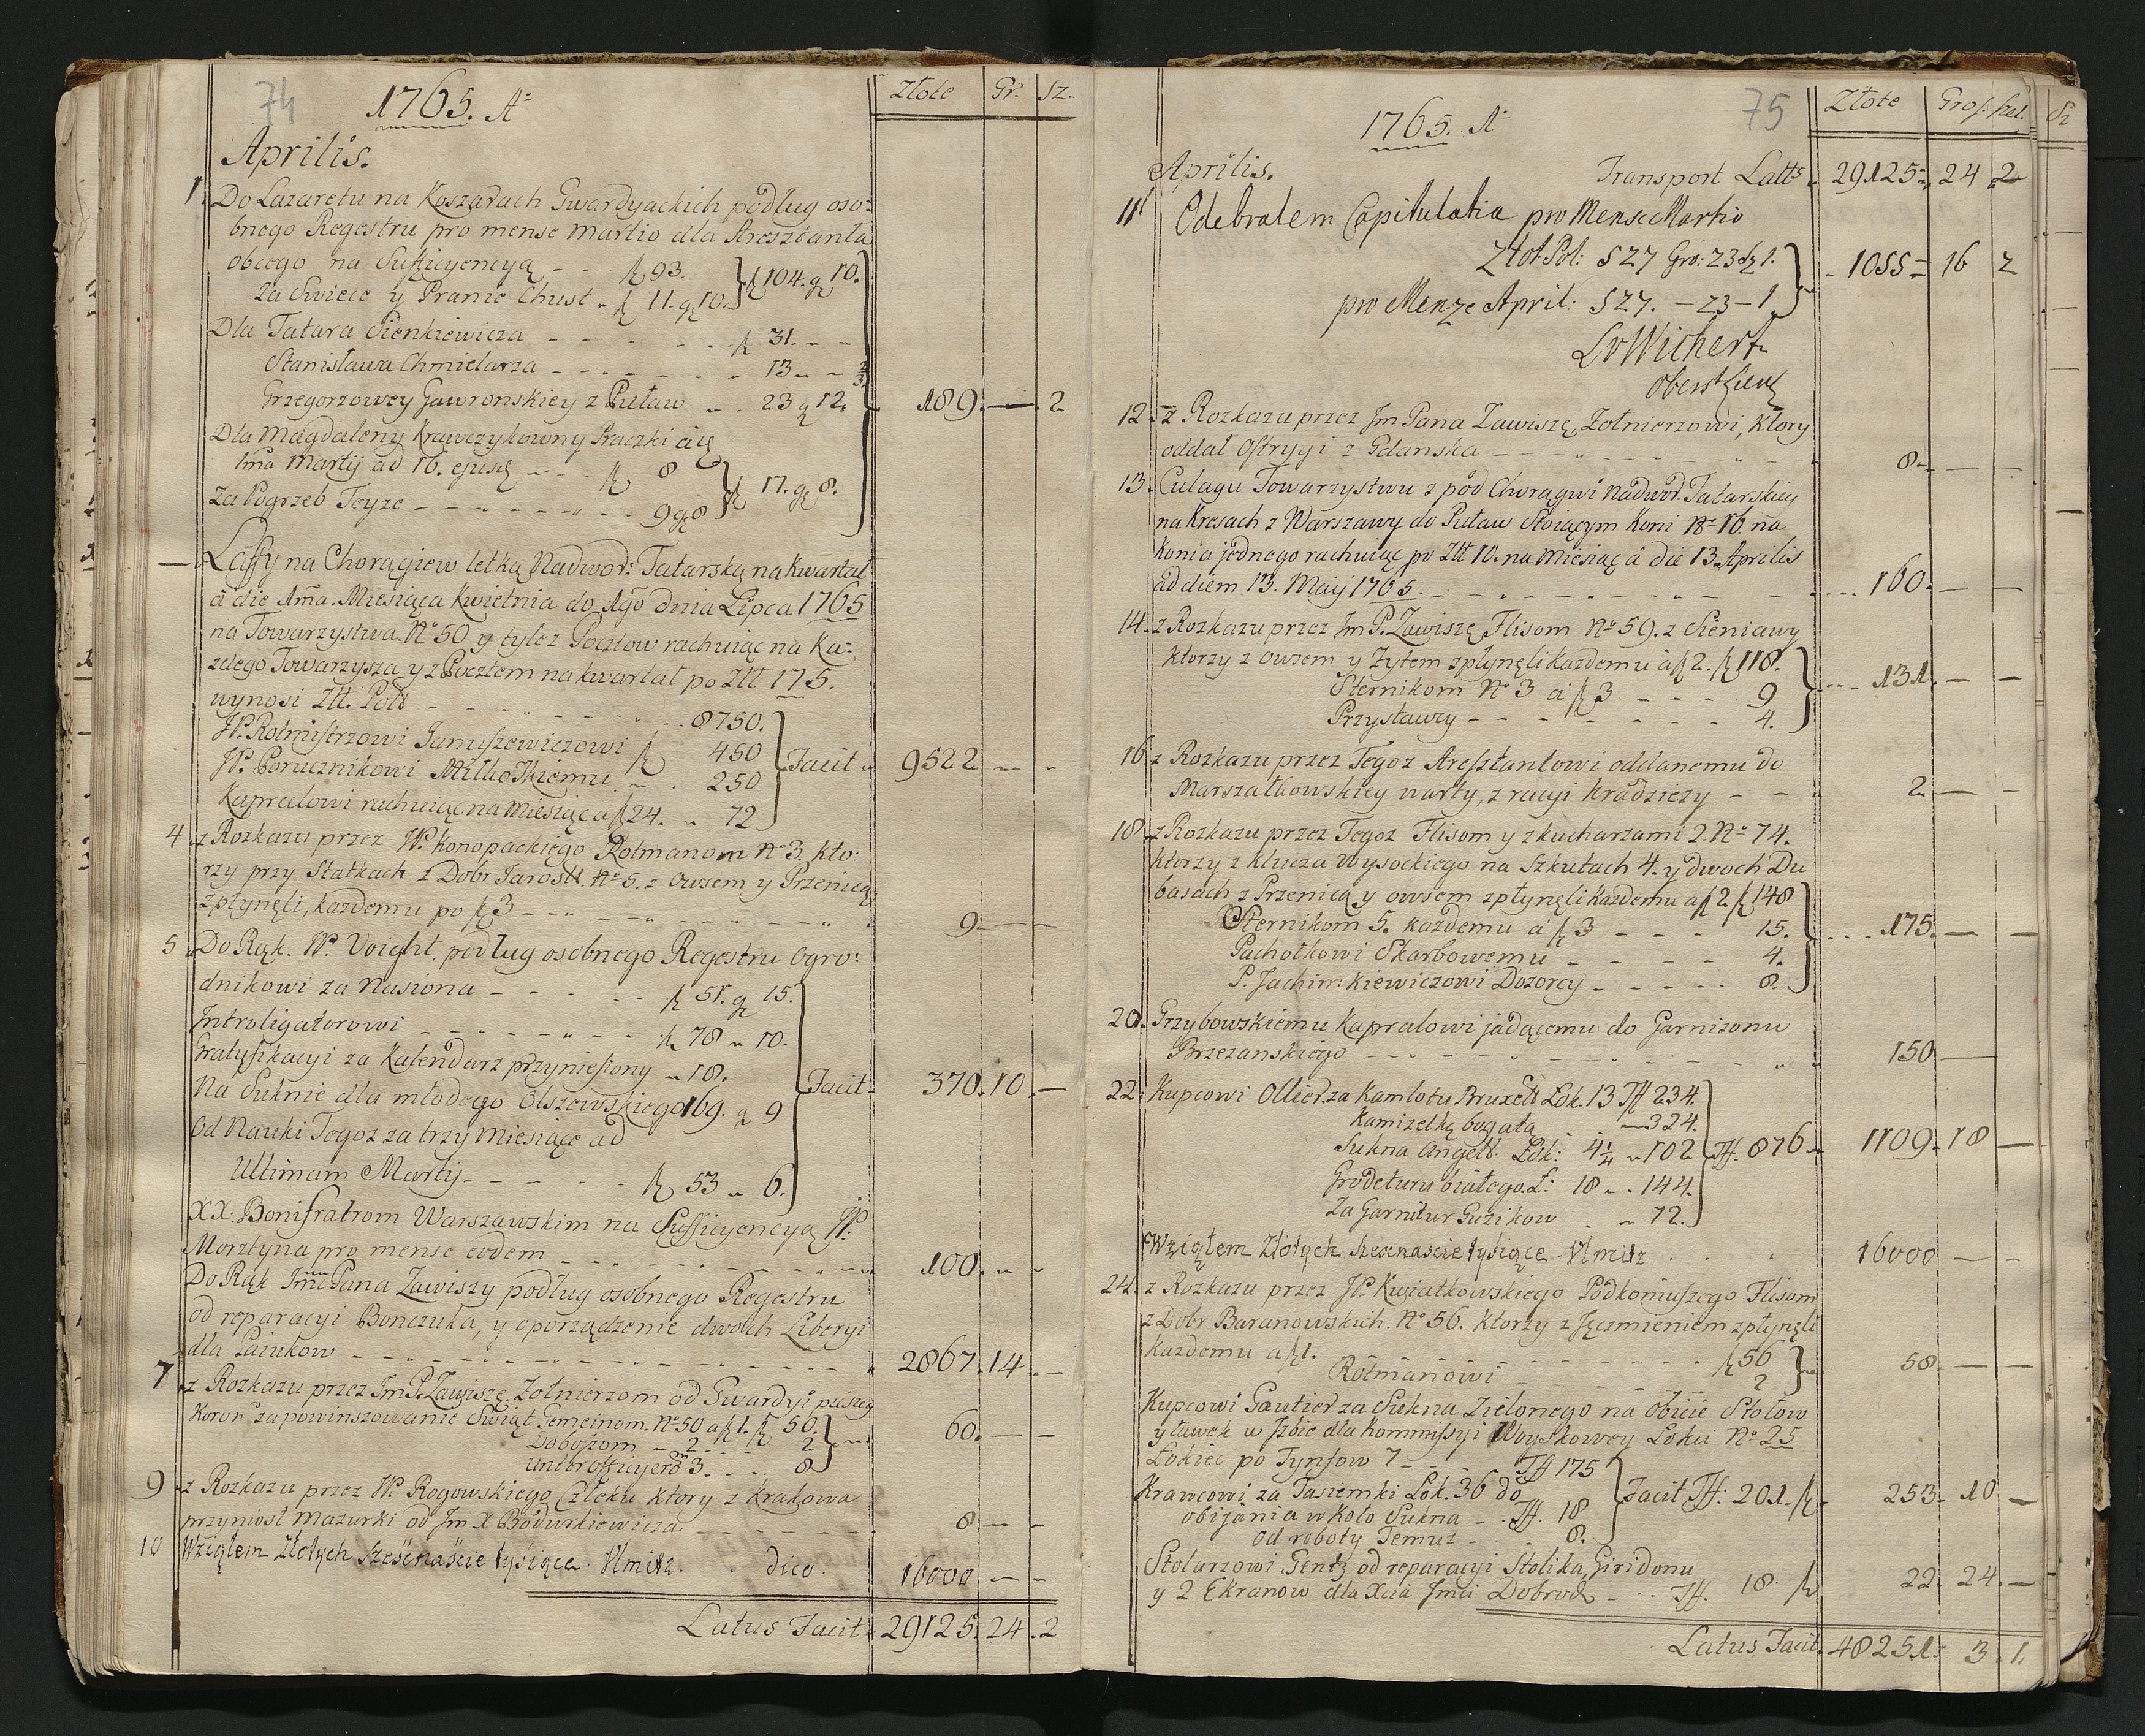 74
1765. A=
Złote Gr. Sz.
Aprilis.
1. Do Lazaretu na Koszarach Gwardyackich podług oso=
bnego Regestru pro mense Martio dla Aresztanta
obcego na Sufficyencyą - - 93.
Za Swiece y Pranie Chust - 11. g 10. } 104. g 10.
Dla Tatara Sienkiewicza - - - - - - 31. - -
Stanisława Chmielarza - - - - - - - 13 - - 2/3
Grzegorzowey Gawronskiey z Puław - - 23 g 12 189. — 2
Dla Magdaleny Krawczykowny Praczki à
1ma Martij ad 16. ejusd - - - 8
Za Pogrzeb Teyze - - - - - - - 9 g 8 } 17. g 8.
— Laffy na Chorągiew letką Nadwor: Tatarską na Kwartał
à die 1ma. Miesiąca Kwietnia do 1go dnia Lipca 1765
na Towarzystwa. No 50 y tylez Pocztow rachuiąc na Ka=
zdego Towarzysza y z Pocztem na kwartał po Złł 175.
wynosi Złł. Poll - - - - - - 8750.
JP. Rotmistrzowi Januszewiczowi 450
JP. Porucznikowi 250
Kapralowi rachuiąc na Miesiąc a 24. - 72 } Facit - 9522 - -
4 z Rozkazu przez JP. Konopackiego Rotmanom No 3. kto=
rzy przy Statkach z Dobr Jarosł. No 5. z Owsem y Przenicą
zpłynęli, kazdemu po 3 - - - - - - 9 - -
5. Do Rąk. JP. Voight, podług osobnego Regestru Ogro=
dnikowi za Nasiona - - - - - 51. g 15.
Introligatorowi - - - - - - - 78 - 10.
Gratyfikacyi za Kalendarz przyniesiony - 18.
Na Suknie dla młodego Olszewskiego 169. g 9
Od Nauki Tegoz za trzy Miesiące ad
Ultimam Martij - - - - - 53 - 6. } Facit - 370. 10. —
XX. Bonifratrom Warszawskim na Sufficyencyą JP.
Morztyna pro mense eodem - - - - - - 100. - -
Do Rąk Jmci Pana Zawiszy podług osobnego Regestru
od reparacyi Bonczuka, y oporządzenie dwoch Liberyi
dla Paiukow - - - - - - - - - 2867. 14. -
7 z Rozkazu przez Jm P. Zawiszę Zołnierzom od Gwardyi pieszey
Koron za powinszowanie Swiąt Gemeinom. No 50 a 1. 50.
Doboszom - 2 - - 2
Underofficyerō 3. - - 8 } 60. — -
9 z Rozkazu przez JP. Rogowskiego Człeku ktory z Krakowa
przyniosł Mazurki od Jm X Bodurkiewicza - - - - 8 — -
10 Wziąłem Złotych szesćnascie tysięce. Vlmitz. dico. 16000 - -
Latus Facit 29125. 24. 2
75
1765. A
Złote Gros. Szel.
Sz
Aprilis. Transport Latts. 29125 = 24 2
11 Odebralem Capitulatia pro Mense Martio
Złot Pol: 527 Gro: 23 sz 1.
pro Menze April: 527. - 23 - 1 } 1055 = 16 2
Lv Wichert
Oberst Lieut
12. z Rozkazu przez Jm Pana Zawiszę, Zołnierzowi, ktory
oddał Ostrygi z Gdanska - - - - - - 8. - -
13. Culagu Towarzystwu z pod Chorągwi Nadwor. Tatarskiey
na Kresach z Warszawy do Puław stoiącym Koni No 16 na
Konia jednego rachuiąc po Złł 10. na Miesiąc à die 13. Aprilis
ad diem 13. Maij 1765. - - - - - - 160. - -
14. z Rozkazu przez Jm P. Zawiszę Flisom No 59. z Sieniawy
ktorzy z Owsem y Zytem zpłynęli kazdemu à 2. 118.
Sternikom No 3 à 3 - - - - 9
Przystawcy - - - - - - - 4. } 131. — -
16. z Rozkazu przez Tegoz Aresztantowi oddanemu do
Marszałkowskiey warty, z racyi kradziezy - - 2. — -
18. z Rozkazu przez Tegoz Flisom y z kucharzami 2. No 74.
ktorzy z klucza Wysockiego na Szkutach 4. y dwoch Du
basach z Przenicą y owsem zpłynęli kazdemu a 2 148
Sternikom 5. kazdemu à 3 - - - 15.
Pachołkowi Skarbowemu - - - - 4.
P. Jachimkiewiczowi Dozorcy - - - - - 8. } 175. — —
20. Grzybowskiemu Kapralowi jadącemu do Garnizonu
Brzezanskiego - - - - - - - - 150 —
22. Kupcowi Ollier. za Kamlotu Bruxell Lok. 13 Tff 234.
Kamizelkę bogata - - - 324.
Sukna Angell. Łok: 4 1/4 - 102
Grodeturu białego. Ł: 18 - - 144.
Za Garnitur Guzikow - - 72. } Tff. 876 - 1109. 18 —
Wziąłem Złotych szesnascie tysięce - Vlmitz 16000 — -
24. z Rozkazu przez JP. Kwiatkowskiego Podkoniuszego Flisom
z Dobr Baranowskich. No 56. ktorzy z Jęczmieniem zpłynęli
kazdemu a 1. - - - - - - - 56
Rotmanowi - - - - - 2 } 58. — —
Kupcowi Gautier za Sukna Zielonego na obicie Stołow
y ławek w Jzbie dla Kommissyi Woyskowey Łokci No 25
Łokiec po Tynfow 7 - - - Tff 175
Krawcowi za Tasiemki Łok. 36 do
obijania w Koło Sukna - - Tff. 18
Od roboty Temuz - - 8. } Facit Tff: 201. 253. 10 —
Stolarzowi Gentz od reparacyi Stolika, Giridonu
y 2 Ekranow dla Xcia Jmci Dobrod - - Tff. 18. 22. 24. —
Latus Facit. 48251: 3. 1.